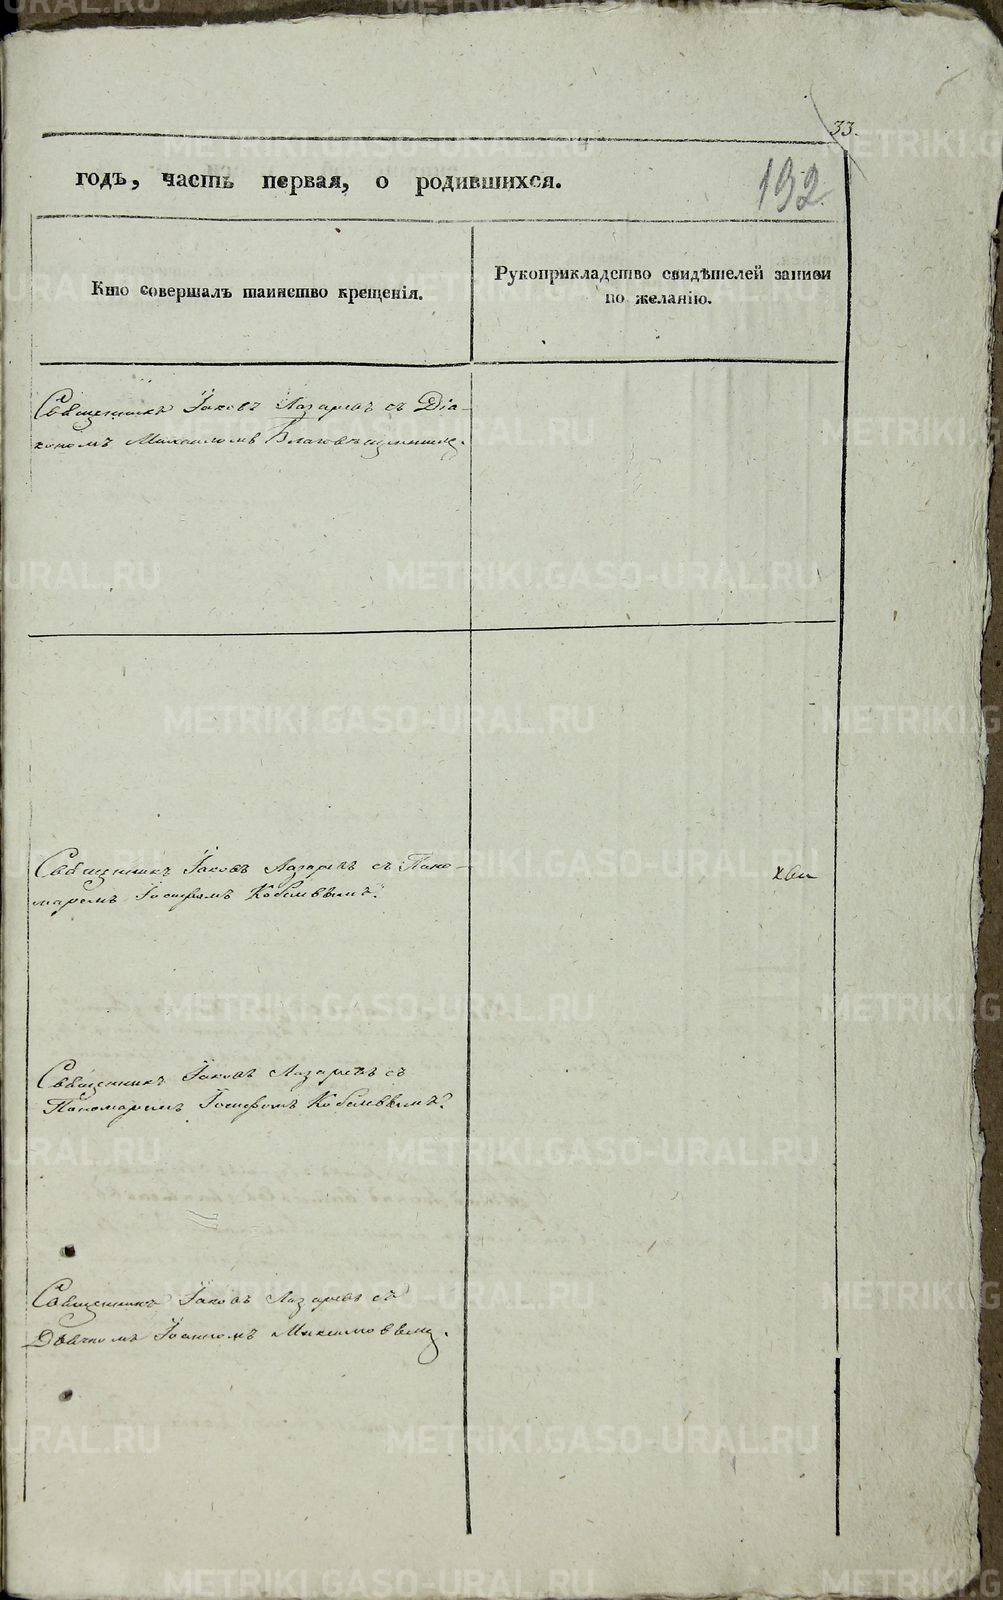 33.
192
годъ, часть первая, о родившихся.
Кто совершалъ таинство крещенія.
Рукоприкладство свидѣтелей записи
по желанію.
Священникъ Іаковъ Лазаревъ съ Діа-
кономъ Михаиломъ Благовѣщенским.
Священникъ Іаковъ Лазаревъ съ Поно-
маремъ Іосифомъ
Священникъ Іаковъ Лазаревъ съ
Пономаремъ Іосифомъ
Священникъ Іаковъ Лазаревъ съ
Дьячкомъ Іоанномъ Максимовымъ.
METRIKI.GASO-URAL.RU